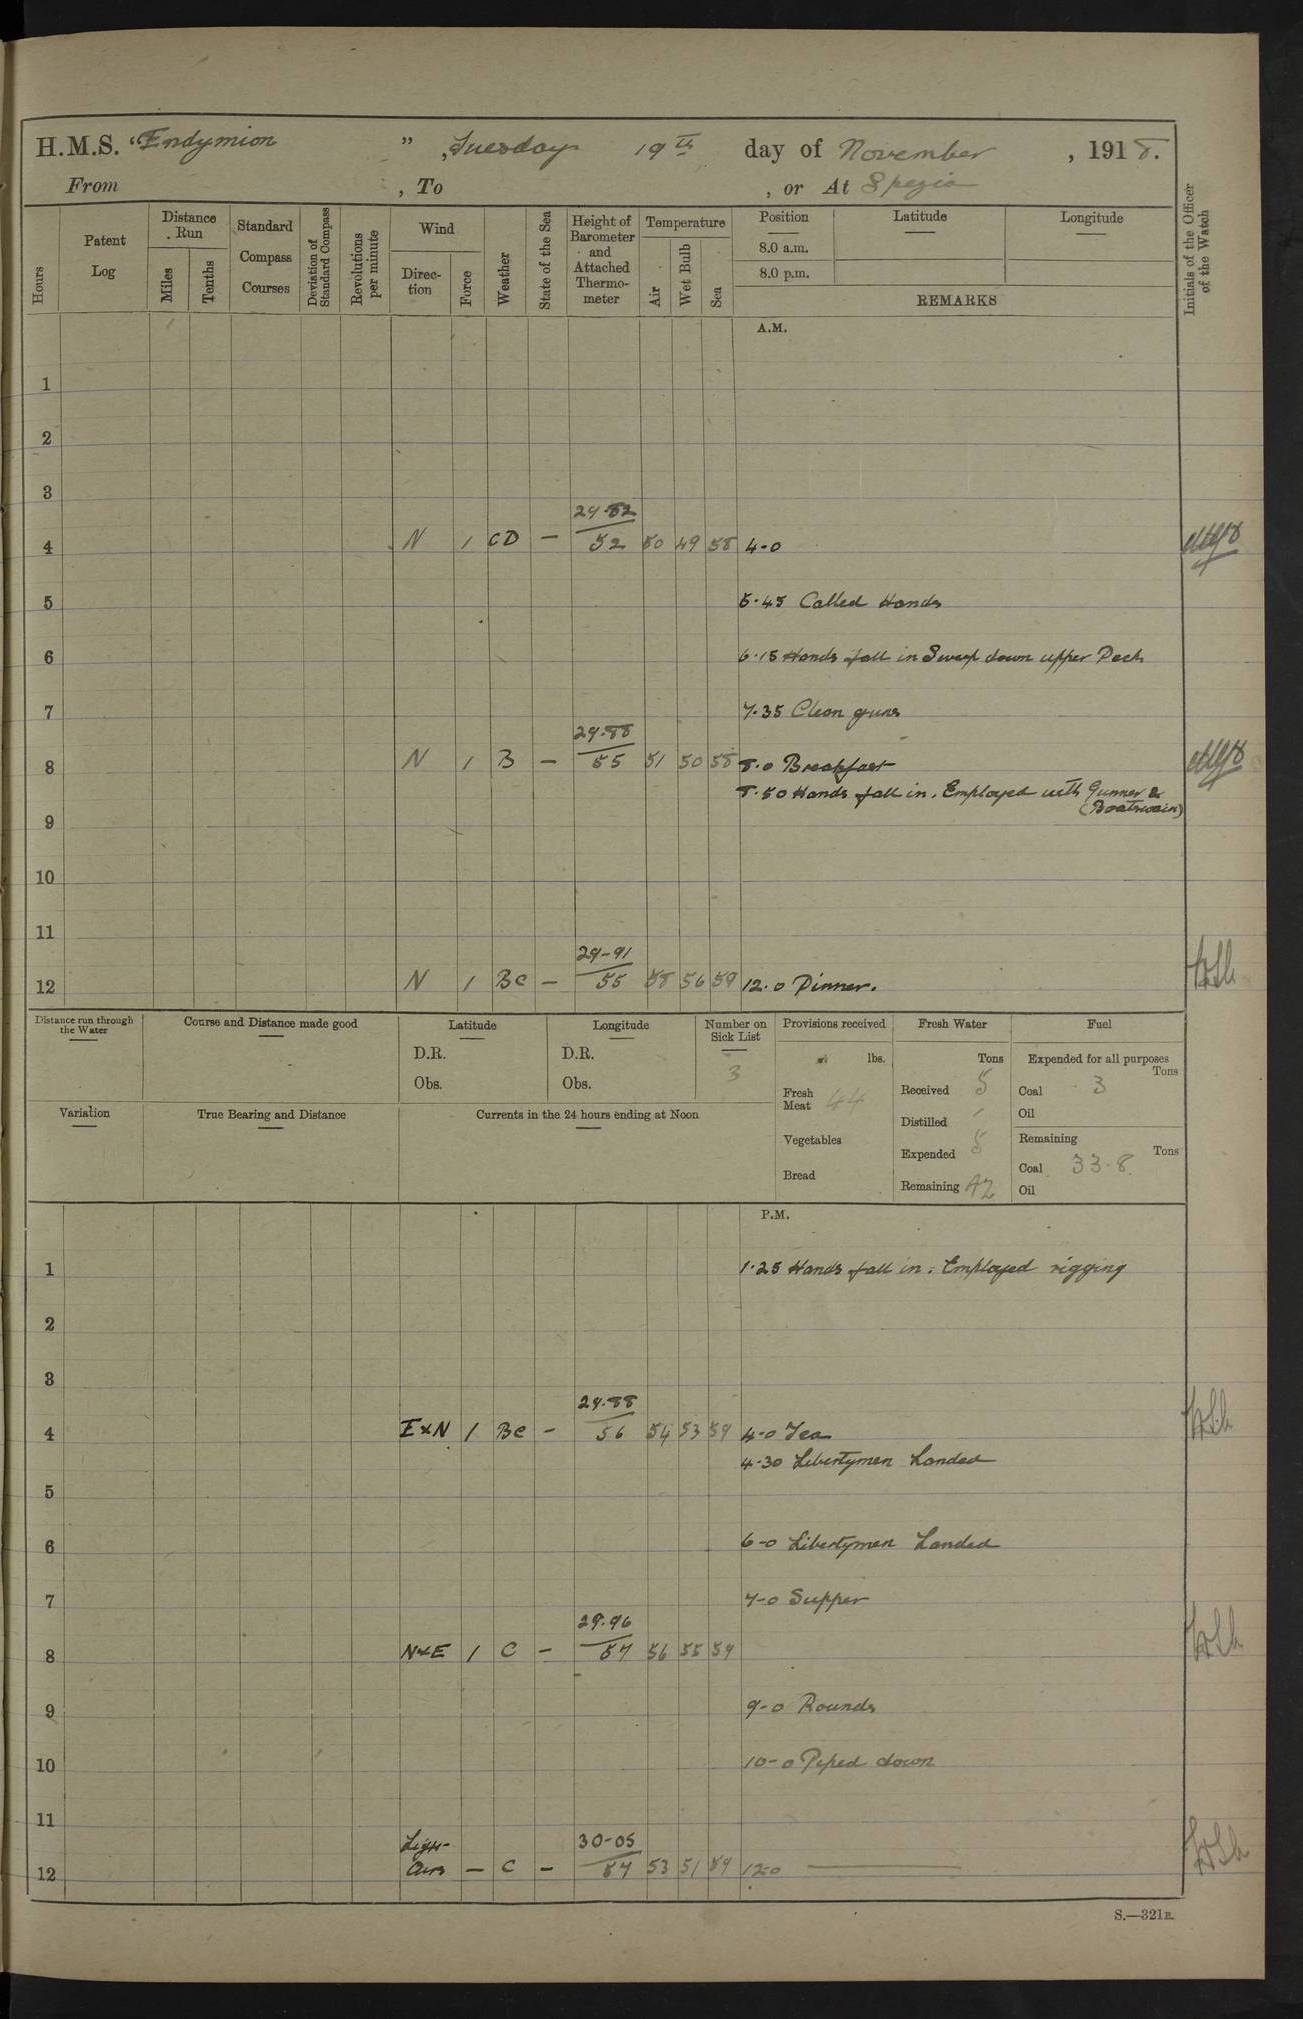 H.M.S. "Endymion", Tuesday 19th day of November, 1918.
From , To , or At Spezia
Hours
Patent Log
Distance Run
Miles
Tenths
Standard Compass Courses
Deviation of Standard Compass
Revolutions per minute
Wind
Direction
Force
Weather
State of the Sea
Height of Barometer and Attached Thermometer
Temperature
Air
Wet Bulb
Sea
Position
8.0 a.m.
8.0 p.m.
Latitude
Longitude
REMARKS
Initials of the Officer of the Watch
A.M.
1
2
3
29.82
4 N 1 CD – 52 50 49 58 4-0
5 5.45 Called Hands
6 6.15 Hands fall in Sweep down upper Deck
7 7.35 Clean guns
29.88
8 N 1 B – 55 51 50 58 8.0 Breakfast
8.50 Hands fall in. Employed with Gunner &
9 (Boatswain)
10
11
29-91
12 N 1 BC – 55 58 56 59 12.0 Dinner.
Distance run through the Water
Course and Distance made good
Latitude
D.R.
Obs.
Longitude
D.R.
Obs.
Number on Sick List
3
Provisions received
lbs.
Fresh Meat 44
Vegetables
Bread
Fresh Water
Tons
Received 5
Distilled /
Expended 5
Remaining 42
Fuel
Expended for all purposes
Tons
Coal 3
Oil
Remaining
Tons
Coal 33.8
Oil
Variation
True Bearing and Distance
Currents in the 24 hours ending at Noon
P.M.
1 1.25 Hands fall in. Employed rigging
2
3
29.88
4 ExN 1 BC – 56 54 53 59 4-0 Tea
4.30 Libertymen Landed
5
6 6-0 Libertymen Landed
7 7-0 Supper
29.96
8 NxE 1 C – 57 56 55 59
9 9-0 Rounds
10 10-0 Piped down
11
Light 30-05
12 Airs – C – 57 53 51 59 12-0
S.—321B.